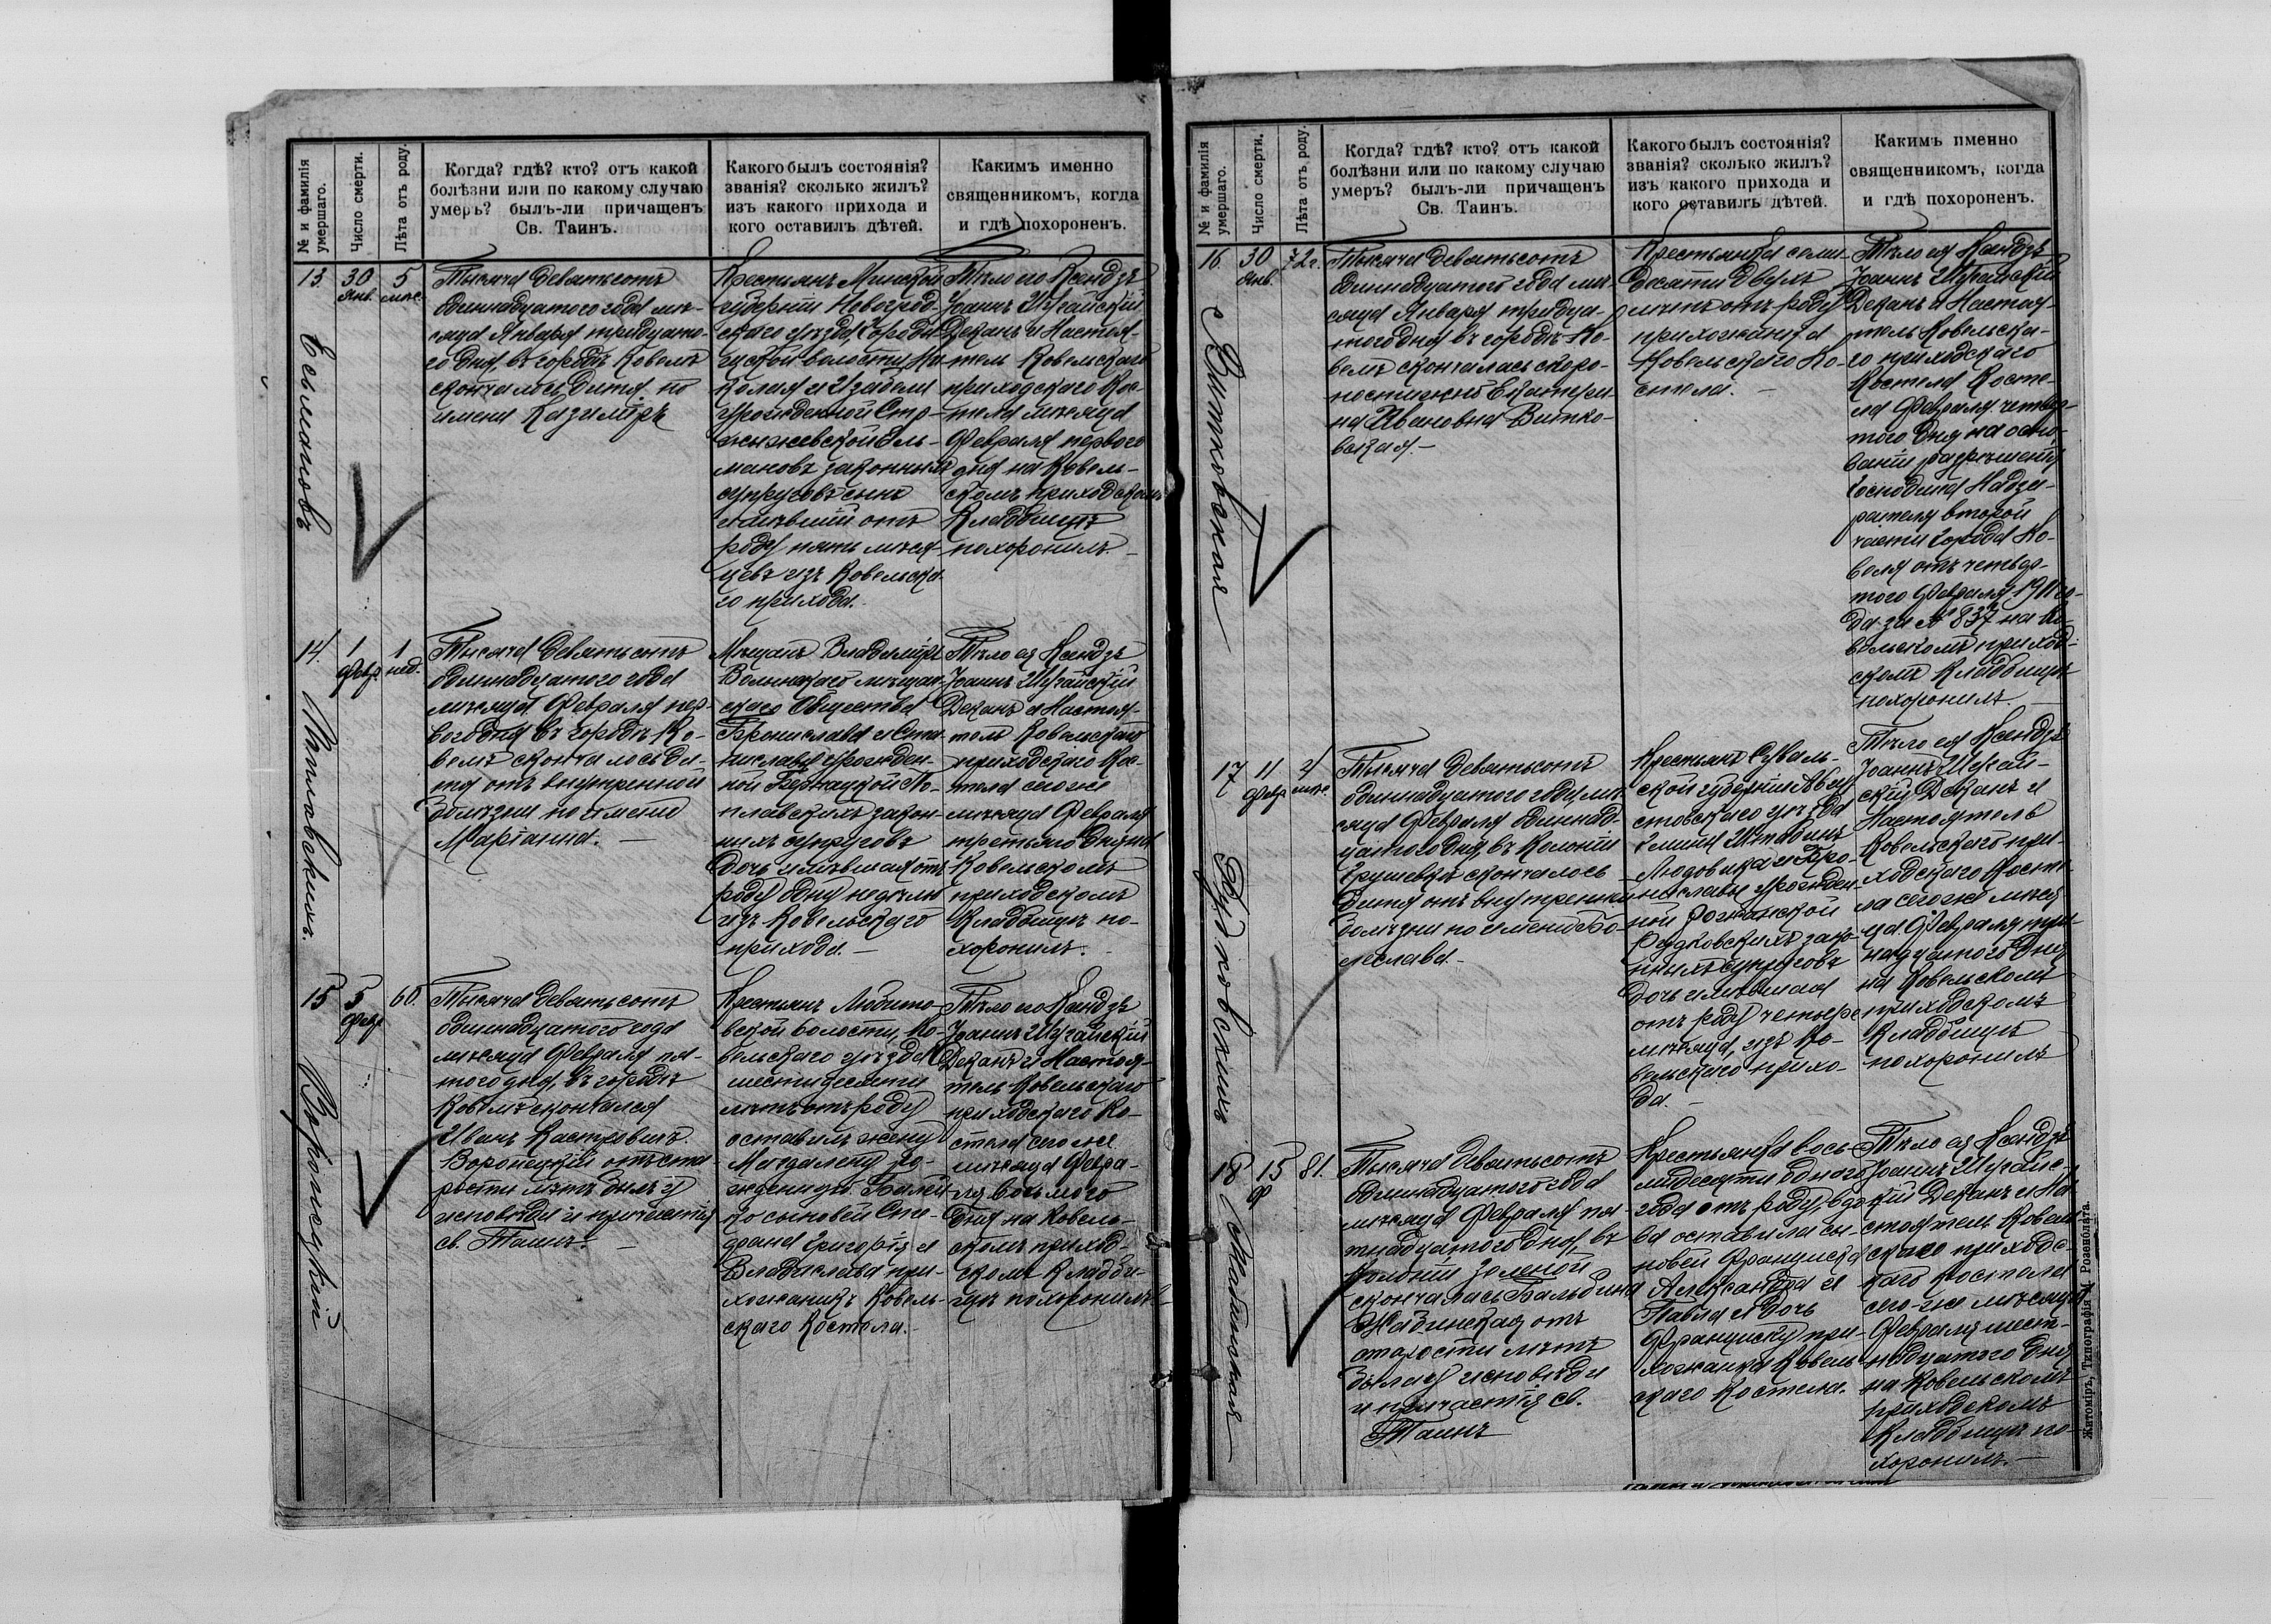 № и фамилія умершаго.
Число смерти.
Лѣта отъ роду.
Когда? гдѣ? кто? отъ какой
болѣзни или по какому случаю
умеръ? былъ-ли причащенъ
Св. Таинъ.
Какого былъ состоянія?
званія? сколько жилъ?
изъ какого прихода и
кого оставилъ дѣтей.
Какимъ именно
священникомъ, когда
и гдѣ похороненъ.
13.
Ельмановъ
30
Янв.
5
мѣс.
Тысяча девятьсотъ
одиннадцатого года мѣ-
сяца Января тридцато-
го дня, въ городѣ Ковелѣ
скончалось дитя по
имени Казиміръ
Крестьянъ Минской
губерніи Новогруд-
скаго уѣзда,
волости Ни-
колая и Изабели
урожденной
Ель-
мановъ законныхъ
супруговъ сынъ
имѣвшій отъ
роду пяти мѣся-
цевъ изъ Ковельска-
го прихода.
Тѣло его Ксендзъ
Іоаннъ Шугайскій
Деканъ и Настоя-
тель Ковельскаго
приходскаго Кос-
тела мѣсяца
Февраля перваго
дня на Ковель-
скомъ приходскомъ
Кладбищѣ
похоронилъ.
14.
Поплавскихъ.
1
Февр.
1
нед.
Тысяча девятьсотъ
одиннадцатого года
мѣсяца Февраля пер-
вого дня въ городѣ Ко-
велѣ скончалось ди-
тя отъ внутренной
болѣзни по имени
Маріанна.
Мѣщанъ Владиміръ
Волынскаго мѣщан-
скаго Общества
Бронислава и Ста-
ниславы урожден-
ной По-
плавскихъ закон-
ныхъ супруговъ
дочь имѣвшая отъ
роду одну недѣлю
изъ Ковельскаго
прихода.
Тѣло ея Ксендзъ
Іоаннъ Шугайскій
Деканъ и Настоя-
тель Ковельскаго
приходскаго Кос-
тела сего же
мѣсяца Февраля
третьяго дня на
Ковельскомъ
приходскомъ
Кладбищѣ по-
хоронилъ.
15
Воронецкій
5
Февр
60.
Тысяча девятьсотъ
одиннадцатого года
мѣсяца Февраля пя-
того дня, въ городѣ
Ковелѣ скончался
Иванъ
Воронецкій отъ ста-
рости лѣтъ былъ у
исповѣди и причастія
св. Таинъ.
Крестьянъ Любито-
вской волости, Ко-
вельскаго уѣзда
шестидесяти
лѣтъ отъ роду
оставилъ жену
Магдалену ро-
жденную
сыновей
Григорія и
Владислава при-
хожанинъ Ковель-
скаго Костела.
Тѣло его Ксендзъ
Іоаннъ Шугайскій
Деканъ и Настоя-
тель Ковельскаго
приходскаго Ко-
стела сего же
мѣсяца Февра-
ля восьмого
дня на Ковель-
скомъ приход-
скомъ кладби-
щѣ похоронилъ.
№ и фамилія умершаго.
Число смерти.
Лѣта отъ роду.
Когда? гдѣ? кто? отъ какой
болѣзни или по какому случаю
умеръ? былъ-ли причащенъ
Св. Таинъ.
Какого былъ состоянія?
званія? сколько жилъ?
изъ какого прихода и
кого оставилъ дѣтей.
Какимъ именно
священникомъ, когда
и гдѣ похороненъ.
16.
Витковская
30
Янв.
72 г.
Тысяча девятьсотъ
одиннадцатого года мѣ-
сяца Января тридца-
того дня въ городѣ Ко-
велѣ скончалась скоро-
постижно Екатери-
на Ивановна Витко-
вская.
Крестьянка семи-
десяти двухъ
лѣтъ отъ роду
прихожанка
Ковельскаго Ко-
стела.
Тѣло ея Ксендзъ
Іоаннъ Шугайскій
Деканъ и Настоя-
тель Ковельска-
го приходскаго
Костела Косте-
ла Февраля четвер-
того дня на осно-
ваніи разрѣшенія
Господина Надзи-
рателя второй
части города Ко-
веля отъ четвер-
того Февраля 1911 го-
да за № 837 на Ко-
вельскомъ приход-
скомъ Кладбищѣ
похоронилъ.
17
Рудковскихъ
11
Февр
4
мѣс.
Тысяча девятьсотъ
одиннадцатого года мѣ-
сяца Февраля одиннад-
цатого дня, въ Колоніи
Грушевкѣ скончалось
дитя отъ внутренней
болѣзни по имени Бо-
леслава.
Крестьянъ Суваль-
ской губерніи Авгу-
стовскаго уѣзда
гмины Штабинъ
Людовика и Бро-
ниславы урожден-
ной
Рудковскихъ зако-
нныхъ супруговъ
дочь имѣвшая
отъ роду четыре
мѣсяца, изъ Ко-
вельскаго прихо-
да.
Тѣло ея Ксендзъ
Іоаннъ Шугай-
скій Деканъ и
Настоятель
Ковельскаго при-
ходскаго Косте-
ла сего же мѣся-
ца Февраля три-
надцатого дня
на Ковельскомъ
приходскомъ
Кладбищѣ
похоронилъ
18
Жабинская
15
Ф
81.
Тысяча девятьсотъ
одиннадцатого года
мѣсяца Февраля пя-
тнадцатого дня, въ
Колоніи Зеленой
скончалась Бальбина
Жабинская отъ
старости лѣтъ
была у исповѣди
и причастія св.
Таинъ
Крестьянка вось-
мидесяти одного
года отъ роду, вдо-
ва оставила сы-
новей Францишка
Александра и
Павла и дочь
Францишку при-
хожанка Ковель-
скаго Костела.
Тѣло ея Ксендзъ
Іоаннъ Шугайс-
кій Деканъ и На-
стоятель Ковель-
скаго приходс-
каго Костела
сего-же мѣсяца
Февраля шест-
надцатого дня
на Ковельскомъ
приходскомъ
Кладбищѣ по-
хоронилъ.
Житоміръ, Типографія М. Розенблата.